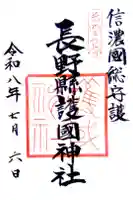 信濃國総守護
長野縣護國神社
令和八年七月六日